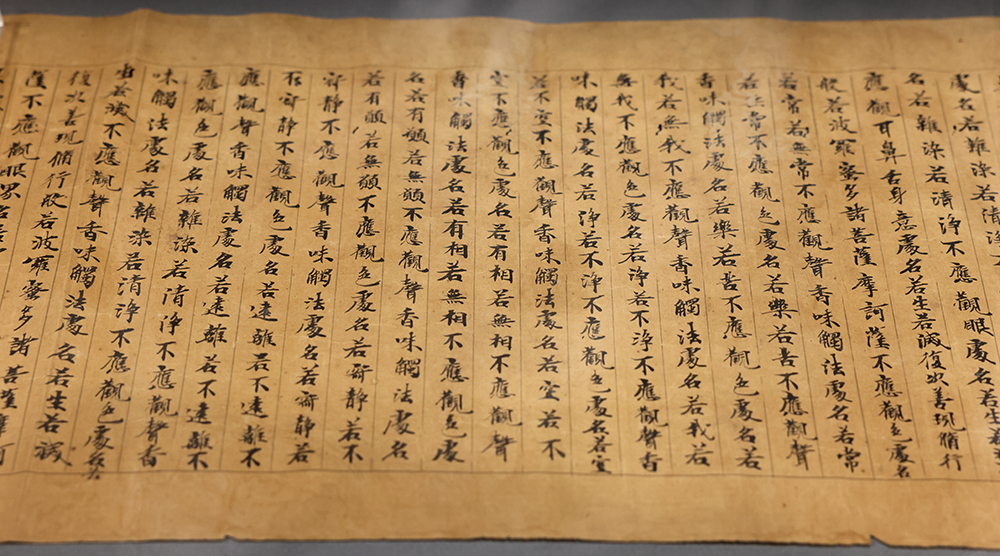 處名若雜染若清
名若雜染若清淨不應觀眼處名若生
應觀耳鼻舌身意處名若生若滅復次善現脩行
般若波羅蜜多諸菩薩摩訶薩不應觀色處名
若常若無常不應觀聲香味觸法處名若常
若無常不應觀色處名若樂若苦不應觀聲
香味觸法處名若樂若苦不應觀色處名若
我若無我不應觀聲香味觸法處名若我若
無我不應觀色處名若淨若不淨不應觀聲香
味觸法處名若淨若不淨不應觀色處名若空
若不空不應觀聲香味觸法處名若空若不
空不應觀色處名若有相若無相不應觀聲
香味觸法處名若有相若無相不應觀色處
名若有願若無願不應觀聲香味觸法處名
若有願若無願不應觀色處名若寂靜若不
寂靜不應觀聲香味觸法處名若寂靜若
不寂靜不應觀色處名若遠離若不遠離不
應觀聲香味觸法處名若遠離若不遠離不
應觀色處名若雜染若清淨不應觀聲香
味觸法處名若雜染若清淨不應觀色處名若
生若滅不應觀聲香味觸法處名若生若滅
復次善現脩行般若波囉蜜多諸菩薩摩訶
薩不應觀眼界名若